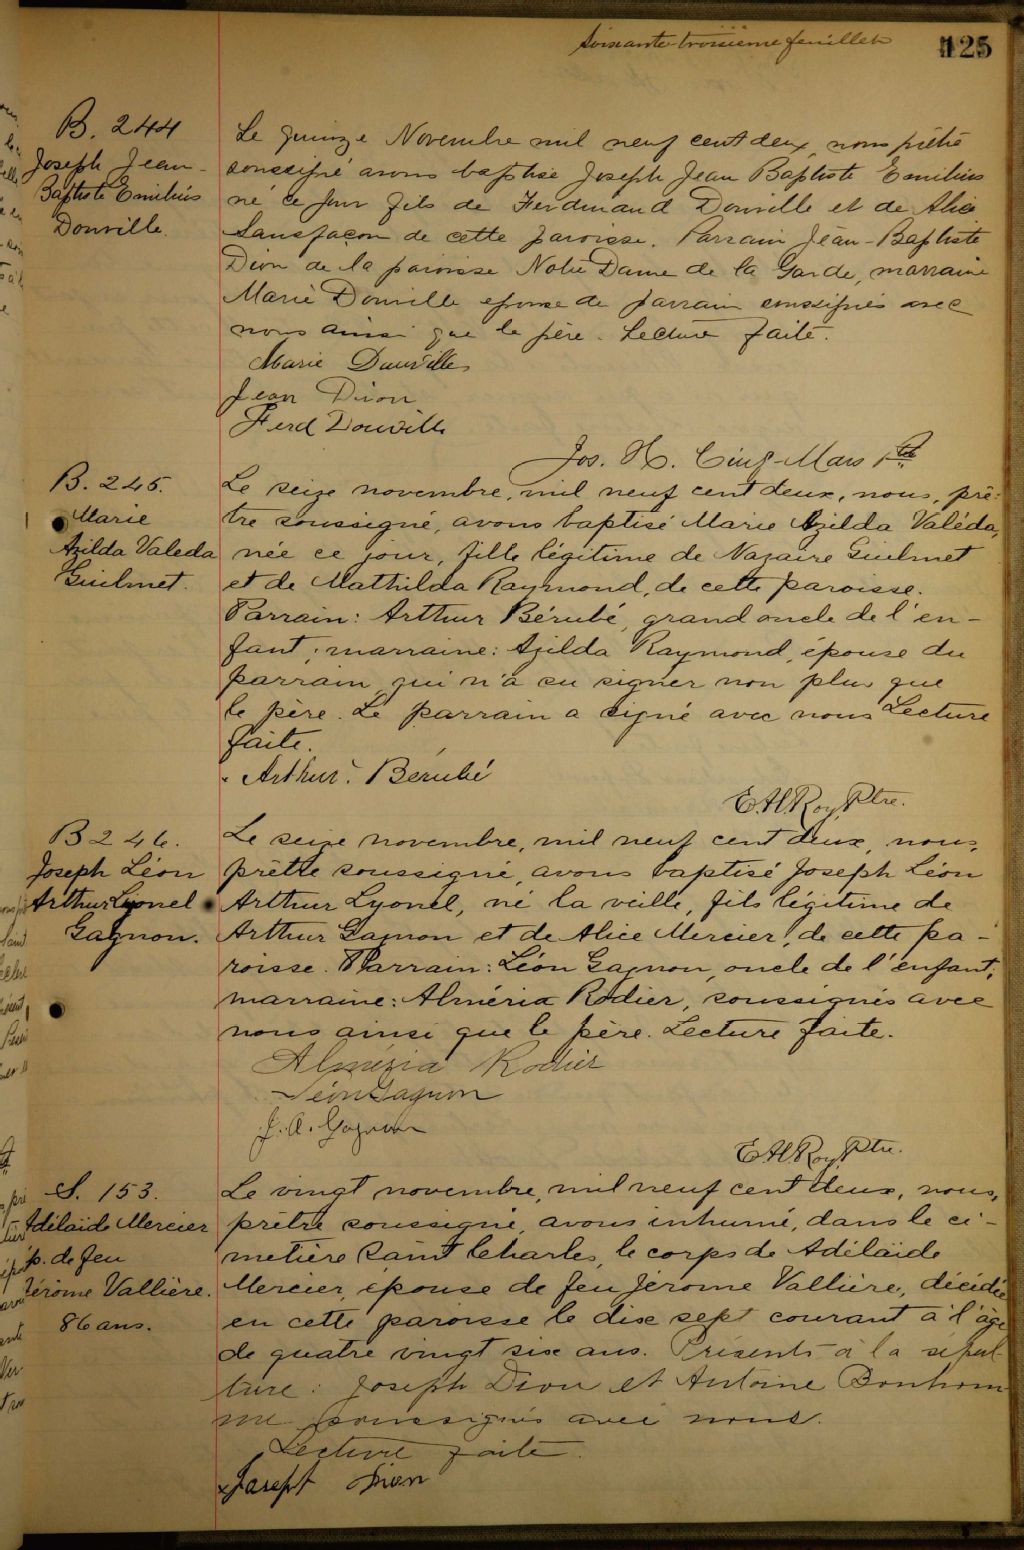 Soixante-troisième feuillet
125
B. 244
Joseph Jean-
Baptiste Emilius
Donville.
Le quinze Novembre mil neuf cent deux, nous prêtre
soussigné avons baptisé Joseph Jean Baptiste Emilius
né ce jour fils de Ferdinand Donville et de Alice
Sansfaçon de cette paroisse. Parrain Jean-Baptiste
Dion de la paroisse Notre Dame de la Garde, marraine
Marie Donville epouse de parrain soussignés avec
nous ainsi que le père. Lecture faite.
Marie Douville
Jean Dion
Ferd Douville
Jos. H. Cinq-Mars Ptre
B. 245.
Marie
Azilda Valeda
Guilmet.
Le seize novembre, mil neuf cent deux, nous, prê-
tre soussigné, avons baptisé Marie Azilda Valéda,
née ce jour, fille légitime de Nazaire Guilmet
et de Mathilda Raymond, de cette paroisse.
Parrain: Arthur Bérubé, grand oncle de l'en-
fant; marraine: Azilda Raymond, épouse du
parrain, qui n'a su signer non plus que
le père. Le parrain a signé avec nous Lecture
faite.
Arthur Bérubé
E.H. Roy, Ptre.
B 246.
Joseph Léon
Arthur Lyonel
Gagnon.
Le seize novembre, mil neuf cent deux, nous,
prêtre soussigné, avons baptisé Joseph Léon
Arthur Lyonel, né la veille, fils légitime de
Arthur Gagnon et de Alice Mercier, de cette pa-
roisse. Parrain: Léon Gagnon, oncle de l'enfant;
marraine: Alméria Rodier, soussignés avec
nous ainsi que le père. Lecture faite.
Almézia Rodier
Léon Gagnon
J. A. Gagnon
E.H. Roy, Ptre.
S. 153.
Adélaïde Mercier
ép. de feu
Jérôme Vallière.
86 ans.
Le vingt novembre, mil neuf cent deux, nous,
prêtre soussigné, avons inhumé, dans le ci-
metière Saint Charles, le corps de Adélaïde
Mercier, épouse de feu Jérome Vallière, décédée
en cette paroisse le dix sept courant à l'âge
de quatre vingt six ans. Présents à la sépul
ture: Joseph Dion et Antoine Bonhom
me soussignés avec nous.
Lecture faite.
Joseph Dion